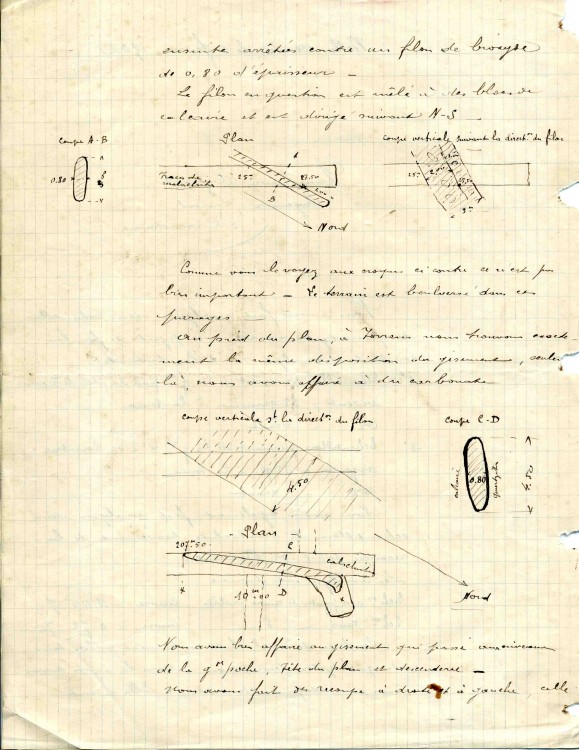 ensuite arrêtées contre un filon de bioxyde
de 0,80 d'épaisseur —
Le filon en question est mêlé à des blocs de
calcaire et est dirigé suivant N-S
Coupe A-B
Plan
Coupe verticale suivant la direct^on du filon
0.80
A
B
Traces de
25^m
27.50
B
Nord
25^m
27.50
3^m
Comme vous le voyez aux croquis ci contre ce n'est pas
bien important — Le terrain est bouleversé dans ces
parages —
Au pied du plan, à Torrein nous trouvons exacte-
ment la même disposition du gisement, seule
là, nous avons affaire à du carbonate
Coupe verticale s^t la direct^on du filon
Coupe C-D
4.50
calcaire
0.80
4.50
- Plan -
207^m 50
C
10^m 00
D
Nord
Nous avons bien affaire au gisement qui passe au niveau
de la g^de poche, Tête du plan et descenderie —
Nous avons fait des recoupe à droite et à gauche, celle